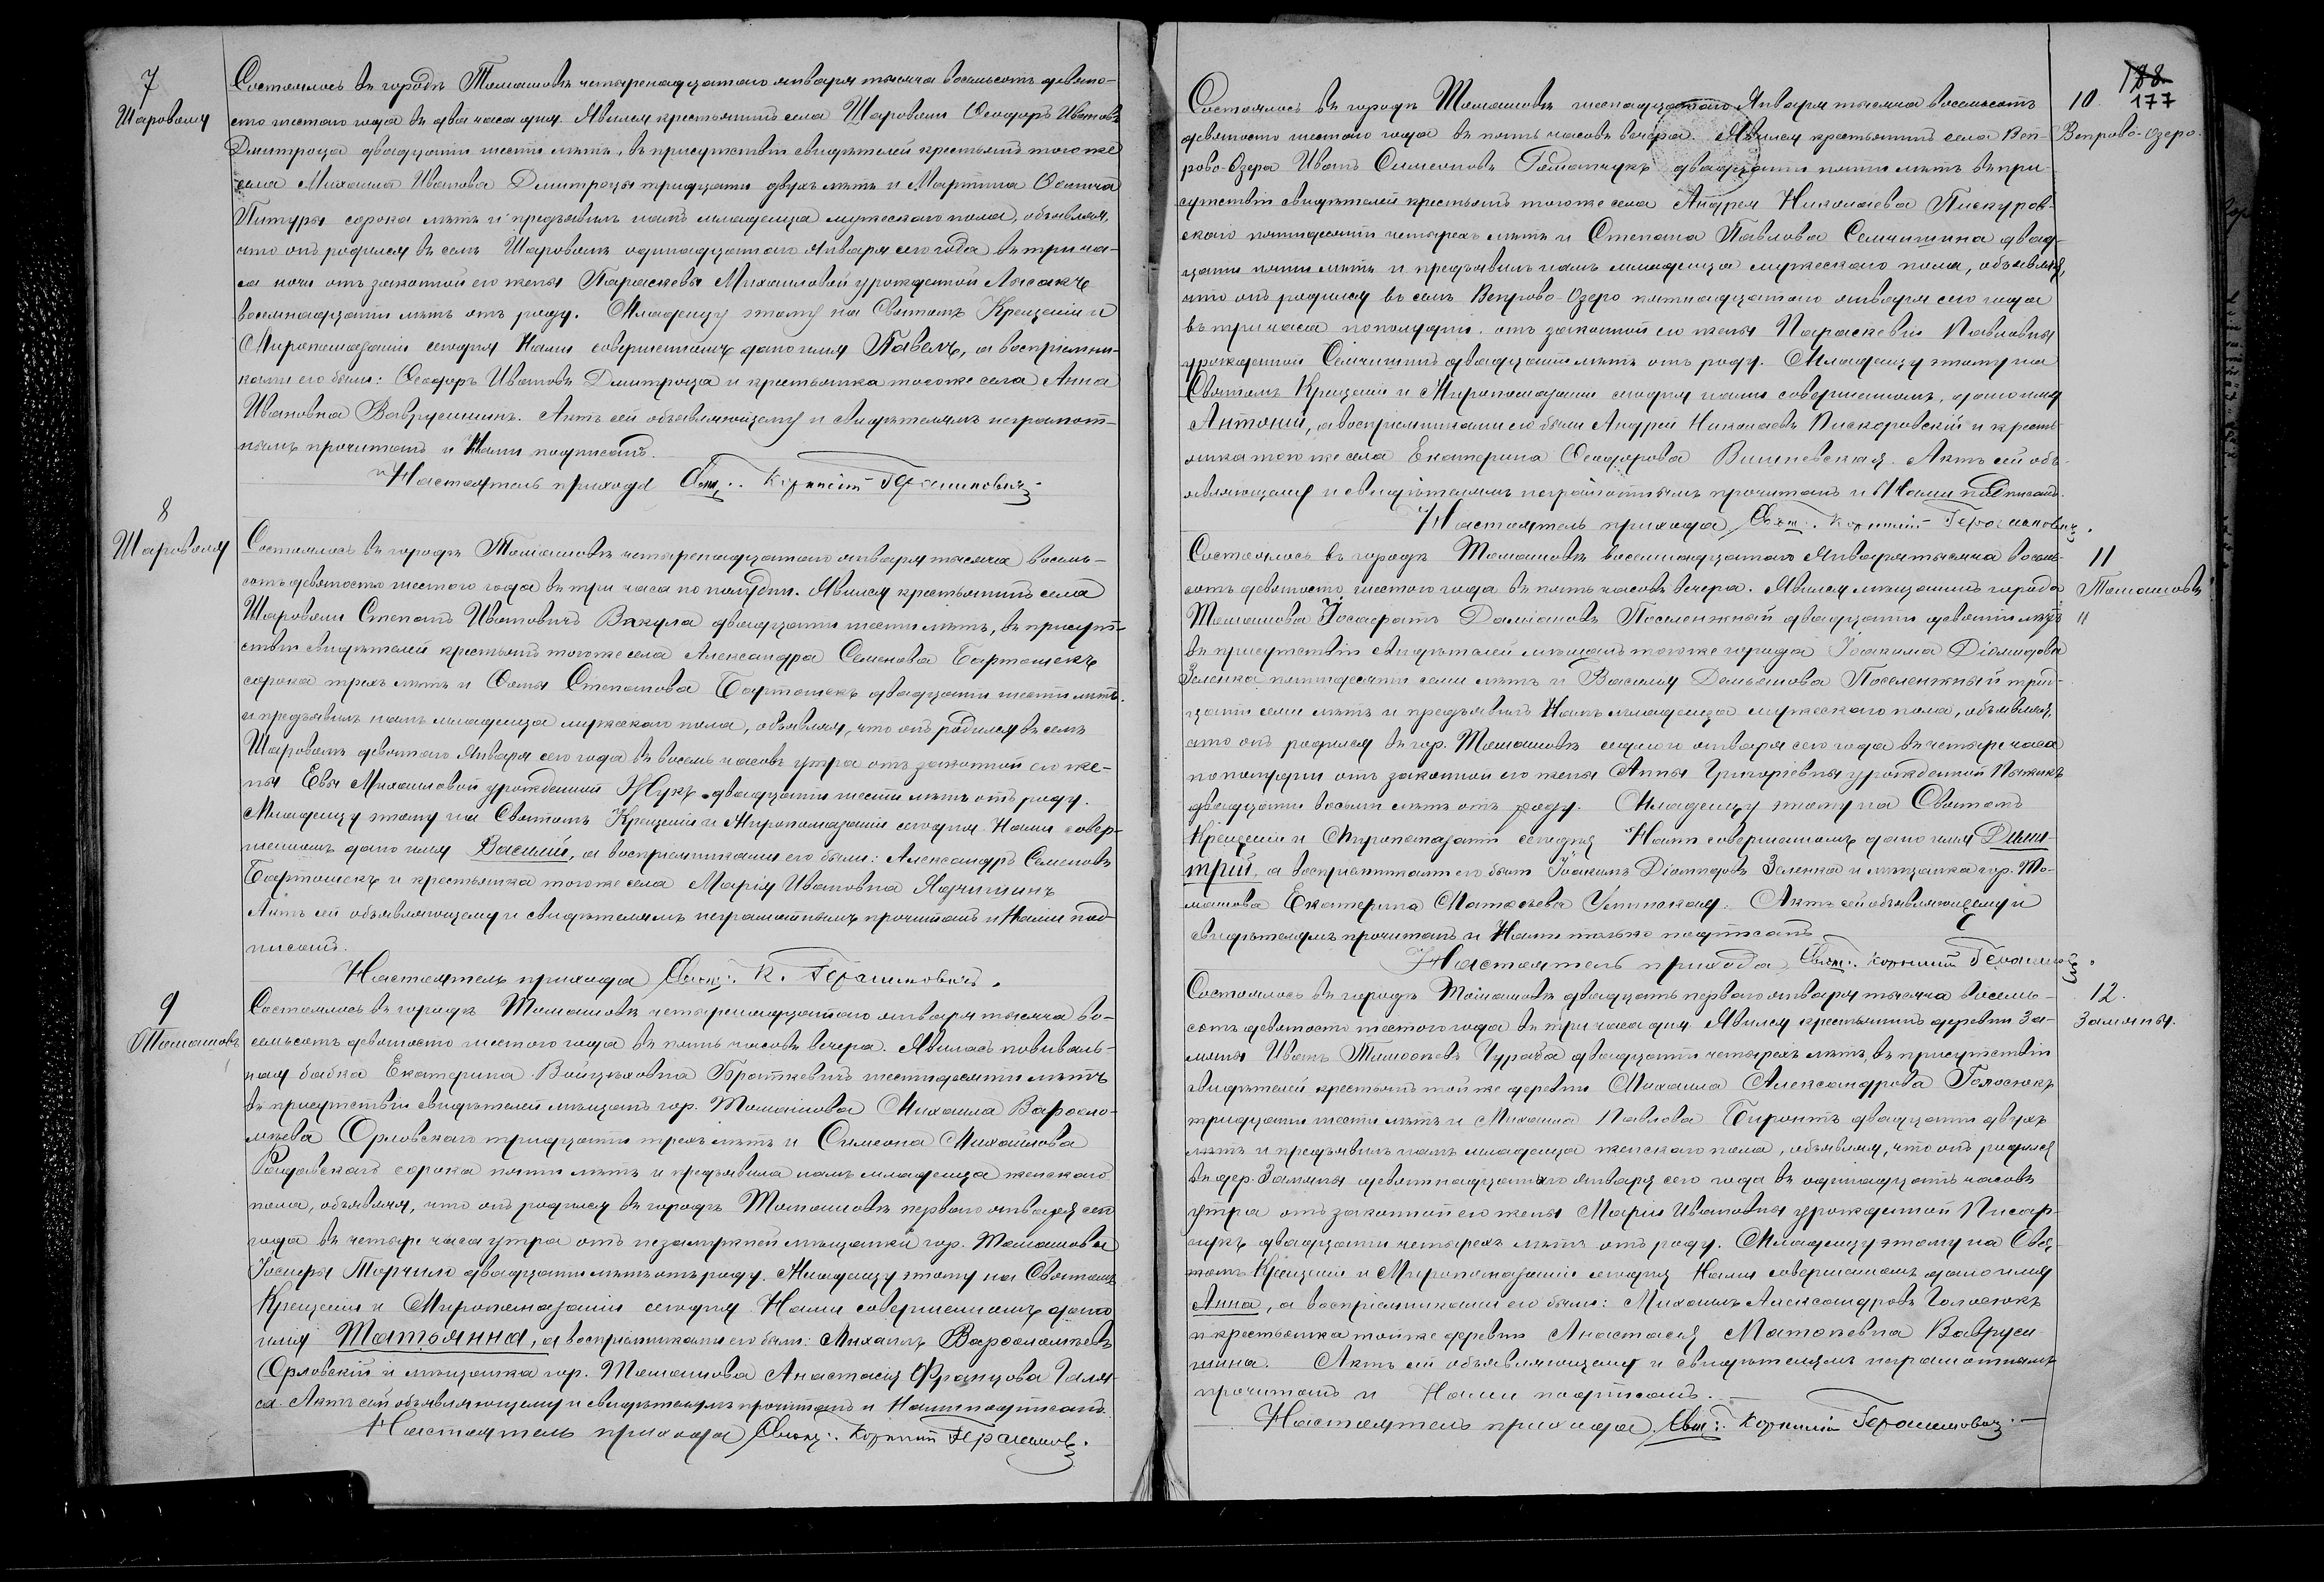 7
Шаровомя
Состоялось въ городѣ Томашовѣ четырнадцатаго января тысяча восемьсотъ девяно-
сто шестаго года въ два часа дня. Явился крестьянинъ села Шароволи Ѳеодоръ Ивановъ
Дмитроца двадцати шести лѣтъ, въ присутствіи свидѣтелей крестьянъ того же
села Михаила Иванова Дмитроцы тридцати двухъ лѣтъ и Мартина
Питуры сорока лѣтъ и предъявилъ намъ младенца мужескаго пола, объявляя,
что онъ родился въ селѣ Шароволѣ одинадцатаго Января сего года въ три ча-
са ночи отъ законной его жены Параскевы Михаиловой урожденной Лысакъ
восемнадцати лѣтъ отъ роду. Младенцу этому на Святомъ Крещеніи и
Миропомазаніи сегодня Нами совершенномъ дано имя Павелъ, а воспріемни-
ками его были: Ѳеодоръ Ивановъ Дмитроца и крестьянка того же села Анна
Ивановна Ваврусишинъ. Актъ сей объявляющему и свидѣтелямъ неграмот-
нымъ прочитанъ и Нами подписанъ.
Настоятель прихода Свящ: Корнилій Герасимовичъ
8
Шароволя
Состоялось въ городѣ Томашовѣ четырнадцатаго января тысяча восемь-
сотъ девяносто шестого года въ три часа по полудни. Явился крестьянинъ села
Шароволи Степанъ Ивановичъ Вакула двадцати шести лѣтъ, въ присут-
ствіи свидѣтелей крестьянъ того же села Александра Семенова Бартошекъ
сорока трехъ лѣтъ и Ѳомы Степанова Бартошекъ двадцати шести лѣтъ.
и предъявилъ намъ младенца мужескаго пола, объявляя, что онъ родился въ селѣ
Шароволѣ девятаго Января сего года въ восемь часовъ утра отъ законной его же-
ны Евы Михаиловой урожденной Жукъ двадцати шести лѣтъ отъ роду.
Младенцу этому на Святомъ Крещеніи и Миропомазаніи сегодня Нами совер-
шенномъ дано имя Василій, а воспріемниками его были: Александръ Семеновъ
Бартошекъ и крестьянка того же села Марія Ивановна Ядчишинъ
Актъ сей объявляющему и свидѣтелямъ неграмотнымъ прочитанъ и Нами под-
писанъ.
Настоятель прихода Свящ: К. Герасимовичъ.
9
Томашовъ
Состоялось въ городѣ Томашовѣ четырнадцатаго января тысяча во-
семьсотъ девяносто шестого года въ пять часовъ вечера. Явилась повиваль-
ная бабка Екатерина Войцѣховна Браткевичъ шестидесяти лѣтъ
въ присутствіи свидѣтелей мѣщанъ гор. Томашова Михаила Варѳоло-
мѣева Орловскаго тридцати трехъ лѣтъ и Симеона Михайлова
сорока пяти лѣтъ и предъявила намъ младенца женскаго
пола, объявляя, что онъ родился въ городѣ Томашовѣ перваго января сего
года въ четыре часа утра отъ незамужней мѣщанки гор. Томашова
Іосифы Торчило двадцати лѣтъ отъ роду. Младенцу этому на Святомъ
Крещеніи и Миропомазаніи сегодня Нами совершенномъ дано
имя Татьянна, а воспріемниками его были: Михаилъ Варѳоломѣевъ
Орловскій и мѣщанка гор. Томашова Анастасія Францова Галя-
са. Актъ сей объявляющему и свидѣтелямъ прочитанъ и Нами подписанъ.
Настоятель прихода Свящ: Корнилій Герасимов.
188
177
10
Вепрово-Озеро.
Состоялось въ городѣ Томашовѣ шеснадцатаго Января тысяча восемьсотъ
девяносто шестого года въ пять часовъ вечера. Явился крестьянинъ села Веп-
рово-Озера Иванъ Симеоновъ двадцати пяти лѣтъ въ при-
сутствіи свидѣтелей крестьянъ того же села Андрея Николаева Пискуров-
скаго пятидесяти четырехъ лѣтъ и Степана Павлова Семчишина двад-
цати пяти лѣтъ и предъявилъ намъ младенца мужескаго пола, объявляя,
что онъ родился въ селѣ Вепрово-Озеро пятнадцатаго января сего года
въ три часа пополудни отъ законной его жены Параскевіи Павловны
урожденной Семчишинъ двадцати лѣтъ отъ роду. Младенцу этому на
Святомъ Крещеніи и Миропомазаніи сегодня нами совершенномъ, дано имя
Антоній, а воспріемниками его были Андрей Николаевъ Пискоровскій и кресть-
янка того же села Екатерина Ѳеодорова Вишневская. Актъ сей объ-
являющему и свидѣтелямъ неграмотнымъ прочитанъ и Нами подписанъ.
Настоятель прихода Свящ: Корнилій Герасимовичъ.
11
Томашовъ
"
Состоялось въ городѣ Томашовѣ восемнадцатаго Января тысяча восемь-
сотъ девяносто шестого года въ пять часовъ вечера. Явился мѣщанинъ города
Томашова Іосафатъ Даміановъ Поселенжный двадцати девяти лѣтъ
въ присутствіи свидѣтелей мѣщанъ того же города Іоакима Діомидова
Зеленка пятидесяти семи лѣтъ и Василія Демьянова Поселенжный трид-
цати семи лѣтъ и предъявилъ Намъ младенца мужескаго пола, объявляя,
что онъ родился въ гор. Томашовѣ седмого января сего года въ четыре часа
пополудни отъ законной его жены Анны Григоріевны урожденной Пыжикъ
двадцати восьми лѣтъ отъ роду. Младенцу этому на Святомъ
Крещеніи и Миропомазаніи сегодня Нами совершенномъ дано имя Дими-
трій, а воспріемниками его были Іоакимъ Діомидовъ Зеленка и мѣщанка гор. То-
машова Екатерина Матѳѣева. Актъ сей объявляющему и
свидѣтелямъ прочитанъ и Нами только подписанъ
Настоятель прихода Свящ: Корнилій Герасимо
12.
Замяны.
Состоялось въ городѣ Томашовѣ двадцать перваго января тысяча восемь-
сотъ девяносто шестого года въ три часа дня. Явился крестьянинъ деревни За-
мяны Иванъ Тимоѳеевъ Чураба двадцати четырехъ лѣтъ, въ присутствіи
свидѣтелей крестьянъ той же деревни Михаила Александрова Голосюкъ
тридцати шести лѣтъ и Михаила Павлова Биронтъ двадцати двухъ
лѣтъ и предъявилъ намъ младенца женскаго пола, объявляя, что онъ родился
въ дер. Замяны девятнадцатаго января сего года въ одинадцать часовъ
утра отъ законной его жены Маріи Ивановны урожденной Писар-
чукъ двадцати четырехъ лѣтъ отъ роду. Младенцу этому на Свя-
томъ Крещеніи и Миропомазаніи сегодня Нами совершенномъ дано имя
Анна, а воспріемниками его были: Михаилъ Александровъ Голосюкъ
и крестьянка той же деревни Анастасія Матѳѣевна Ваврусь-
шина. Актъ сей объявляющему и свидѣтелямъ неграмотнымъ
прочитанъ и Нами подписанъ.
Настоятель прихода Свящ: Корнилій Герасимовичъ.